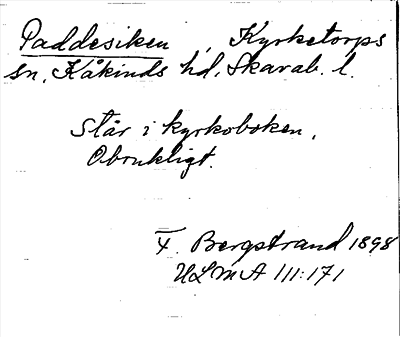 Paddesiken, Kyrketorps
sn, Kåkinds hd, Skarab. l.
Står i kyrkoboken.
Obrukligt.
F. Bergstrand 1898
ULMA 111:171